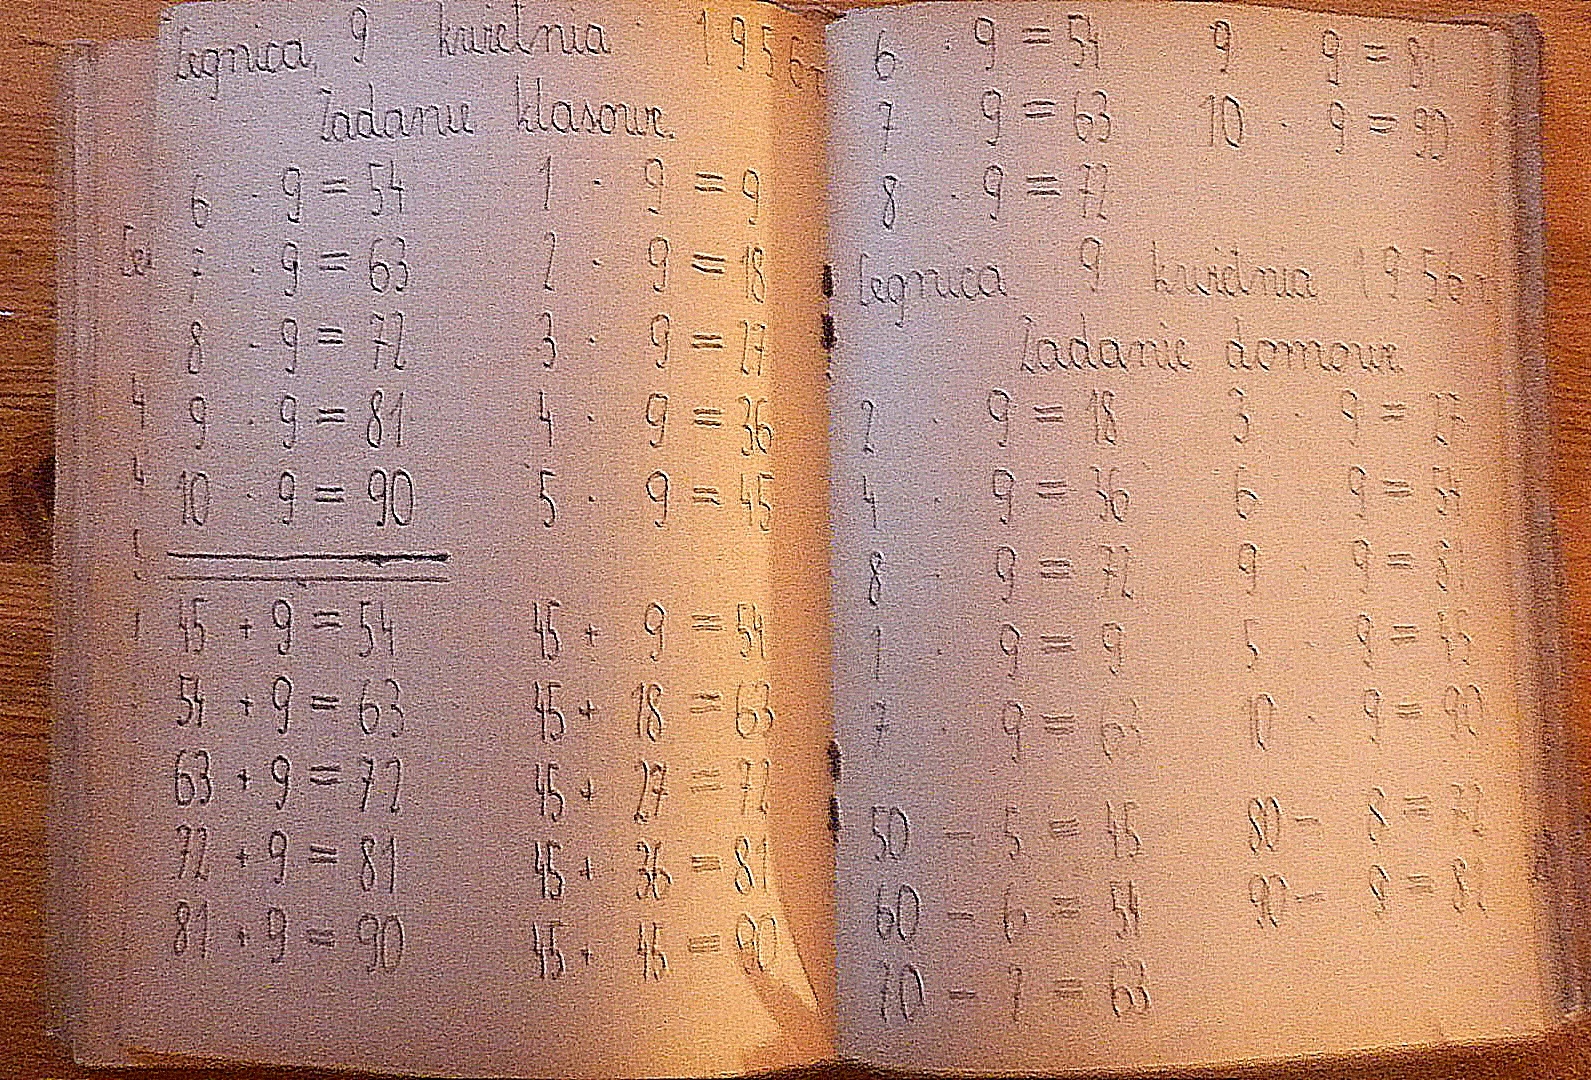 Legnica, 9 kwietnia 1956 r
Zadanie klasowe.
6 · 9 = 54 1 · 9 = 9
7 · 9 = 63 2 · 9 = 18
8 · 9 = 72 3 · 9 = 27
9 · 9 = 81 4 · 9 = 36
10 · 9 = 90 5 · 9 = 45
45 + 9 = 54 45 + 9 = 54
54 + 9 = 63 45 + 18 = 63
63 + 9 = 72 45 + 27 = 72
72 + 9 = 81 45 + 36 = 81
81 + 9 = 90 45 + 45 = 90
6 · 9 = 54 9 · 9 = 81
7 · 9 = 63 10 · 9 = 90
8 · 9 = 72
Legnica 9 kwietnia 1956 r
Zadanie domowe
2 · 9 = 18 3 · 9 = 27
4 · 9 = 36 6 · 9 = 54
8 · 9 = 72 9 · 9 = 81
1 · 9 = 9 5 · 9 = 45
7 · 9 = 63 10 · 9 = 90
50 - 5 = 45 80 - 8 = 72
60 - 6 = 54 90 -
70 - 7 = 63